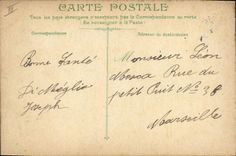 CARTE POSTALE
Tous les pays étrangers n'acceptent pas la Correspondance au recto
(Se renseigner à la Poste)
Correspondance
Adresse du destinataire
Bonne Santé
Di Méglio
Joseph
Monsieur Léon
Rue du
petit Puit No 38
Marseille